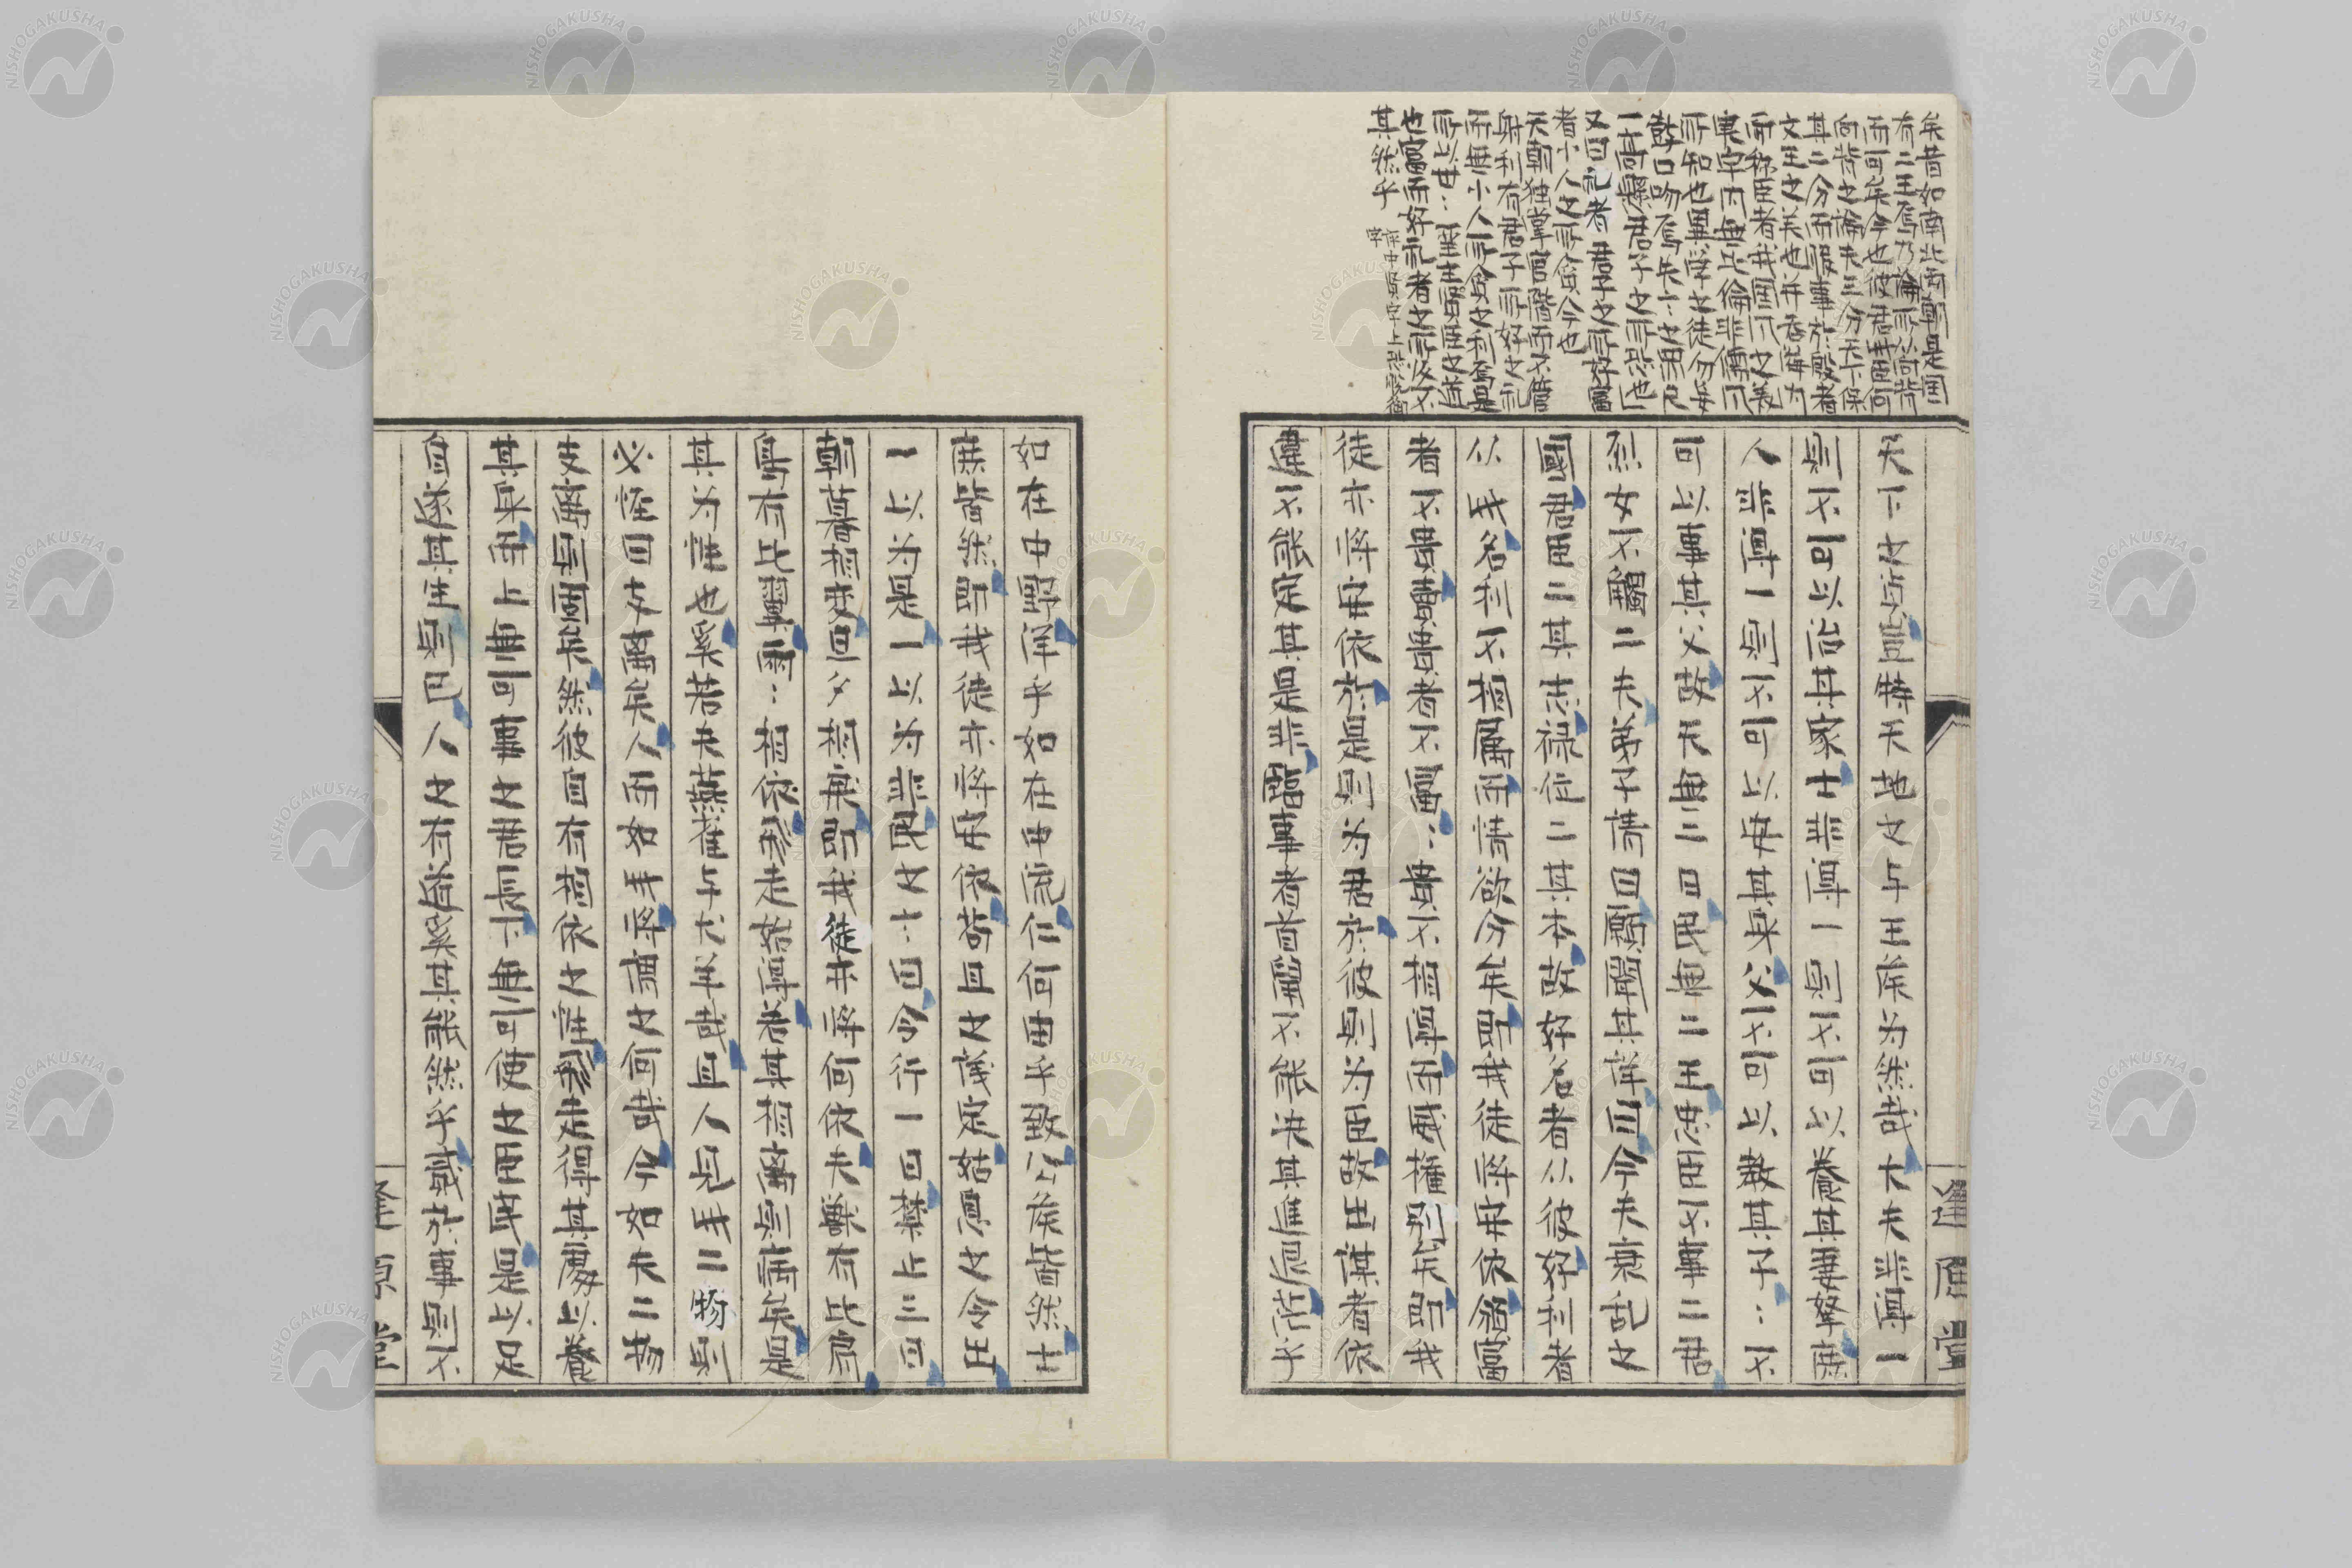 矣昔如南北両朝是国
有二王焉乃論所以向背
而可矣今也彼君我臣何
向背之論夫三分天下保
其二分而服事於殷者
文王之美也并吞海内
而称臣者我国之美
宇内無比倫非
所知也異学之徒勿妄
鼓口吻焉矣
君子之所
又曰礼者君子之所好富
者小人之所貪今也
天朝独掌官階而不借
射利有君子所好之礼
而無小人所貪之利
所以
也富而好礼者之所以不
其然乎
天下之貞豈特天地之与王侯為然哉大夫非得一
則不可以治其家士非得一則不可以養其妻孥庶
人非得一則不可以安其身父不可以教其子〻不
可以事其父故天無二日民無二王忠臣不事二君
烈女不更二夫弟子請曰願聞其詳曰今夫衰乱之
國君臣二其志禄位二其本故好名者从彼好利者
从我名利不相属而情欲分矣即我徒将安依顧富
者不貴貴者不富〻貴不相得而威権別矣即我
徒亦将安依於是則为君於彼則为臣故出謀者依
違不能定其是非臨事者首鼠不能决其進退茫乎
逢原堂
如在中野渾乎如在中流何由乎致公侯皆然士
庶皆然即我徒亦将安依苟且之議定姑息之令出
一以为是一以为非民之〻曰令行一日禁止三日
朝暮相変旦夕相乖即我徒亦将何依夫獣有比肩
鳥有比翼爾〻相依飛走始得若其相离則病矣是
其为誰也奚若夫与犬羊哉且人見我二物則
必怪曰支離矣人而如我将謂之何哉今如夫二物
支离則固矣然彼自有相依之性飛走得其慶以養
其身而上無可事之君長下無可使之臣民是以足
自遂其生則已人之有道奚其能然乎哉於事則不
逢原堂